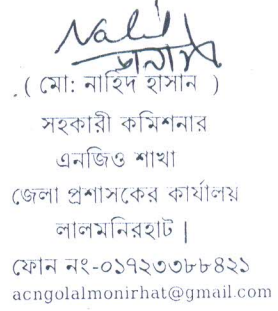 ( মো: নাহিদ হাসান )
সহকারী কমিশনার
এনজিও শাখা
জেলা প্রশাসকের কার্যালয়
লালমনিরহাট |
ফোন নং-০১৭২৩৩৮৮৪২১
acngolalmonirhat@gmail.com